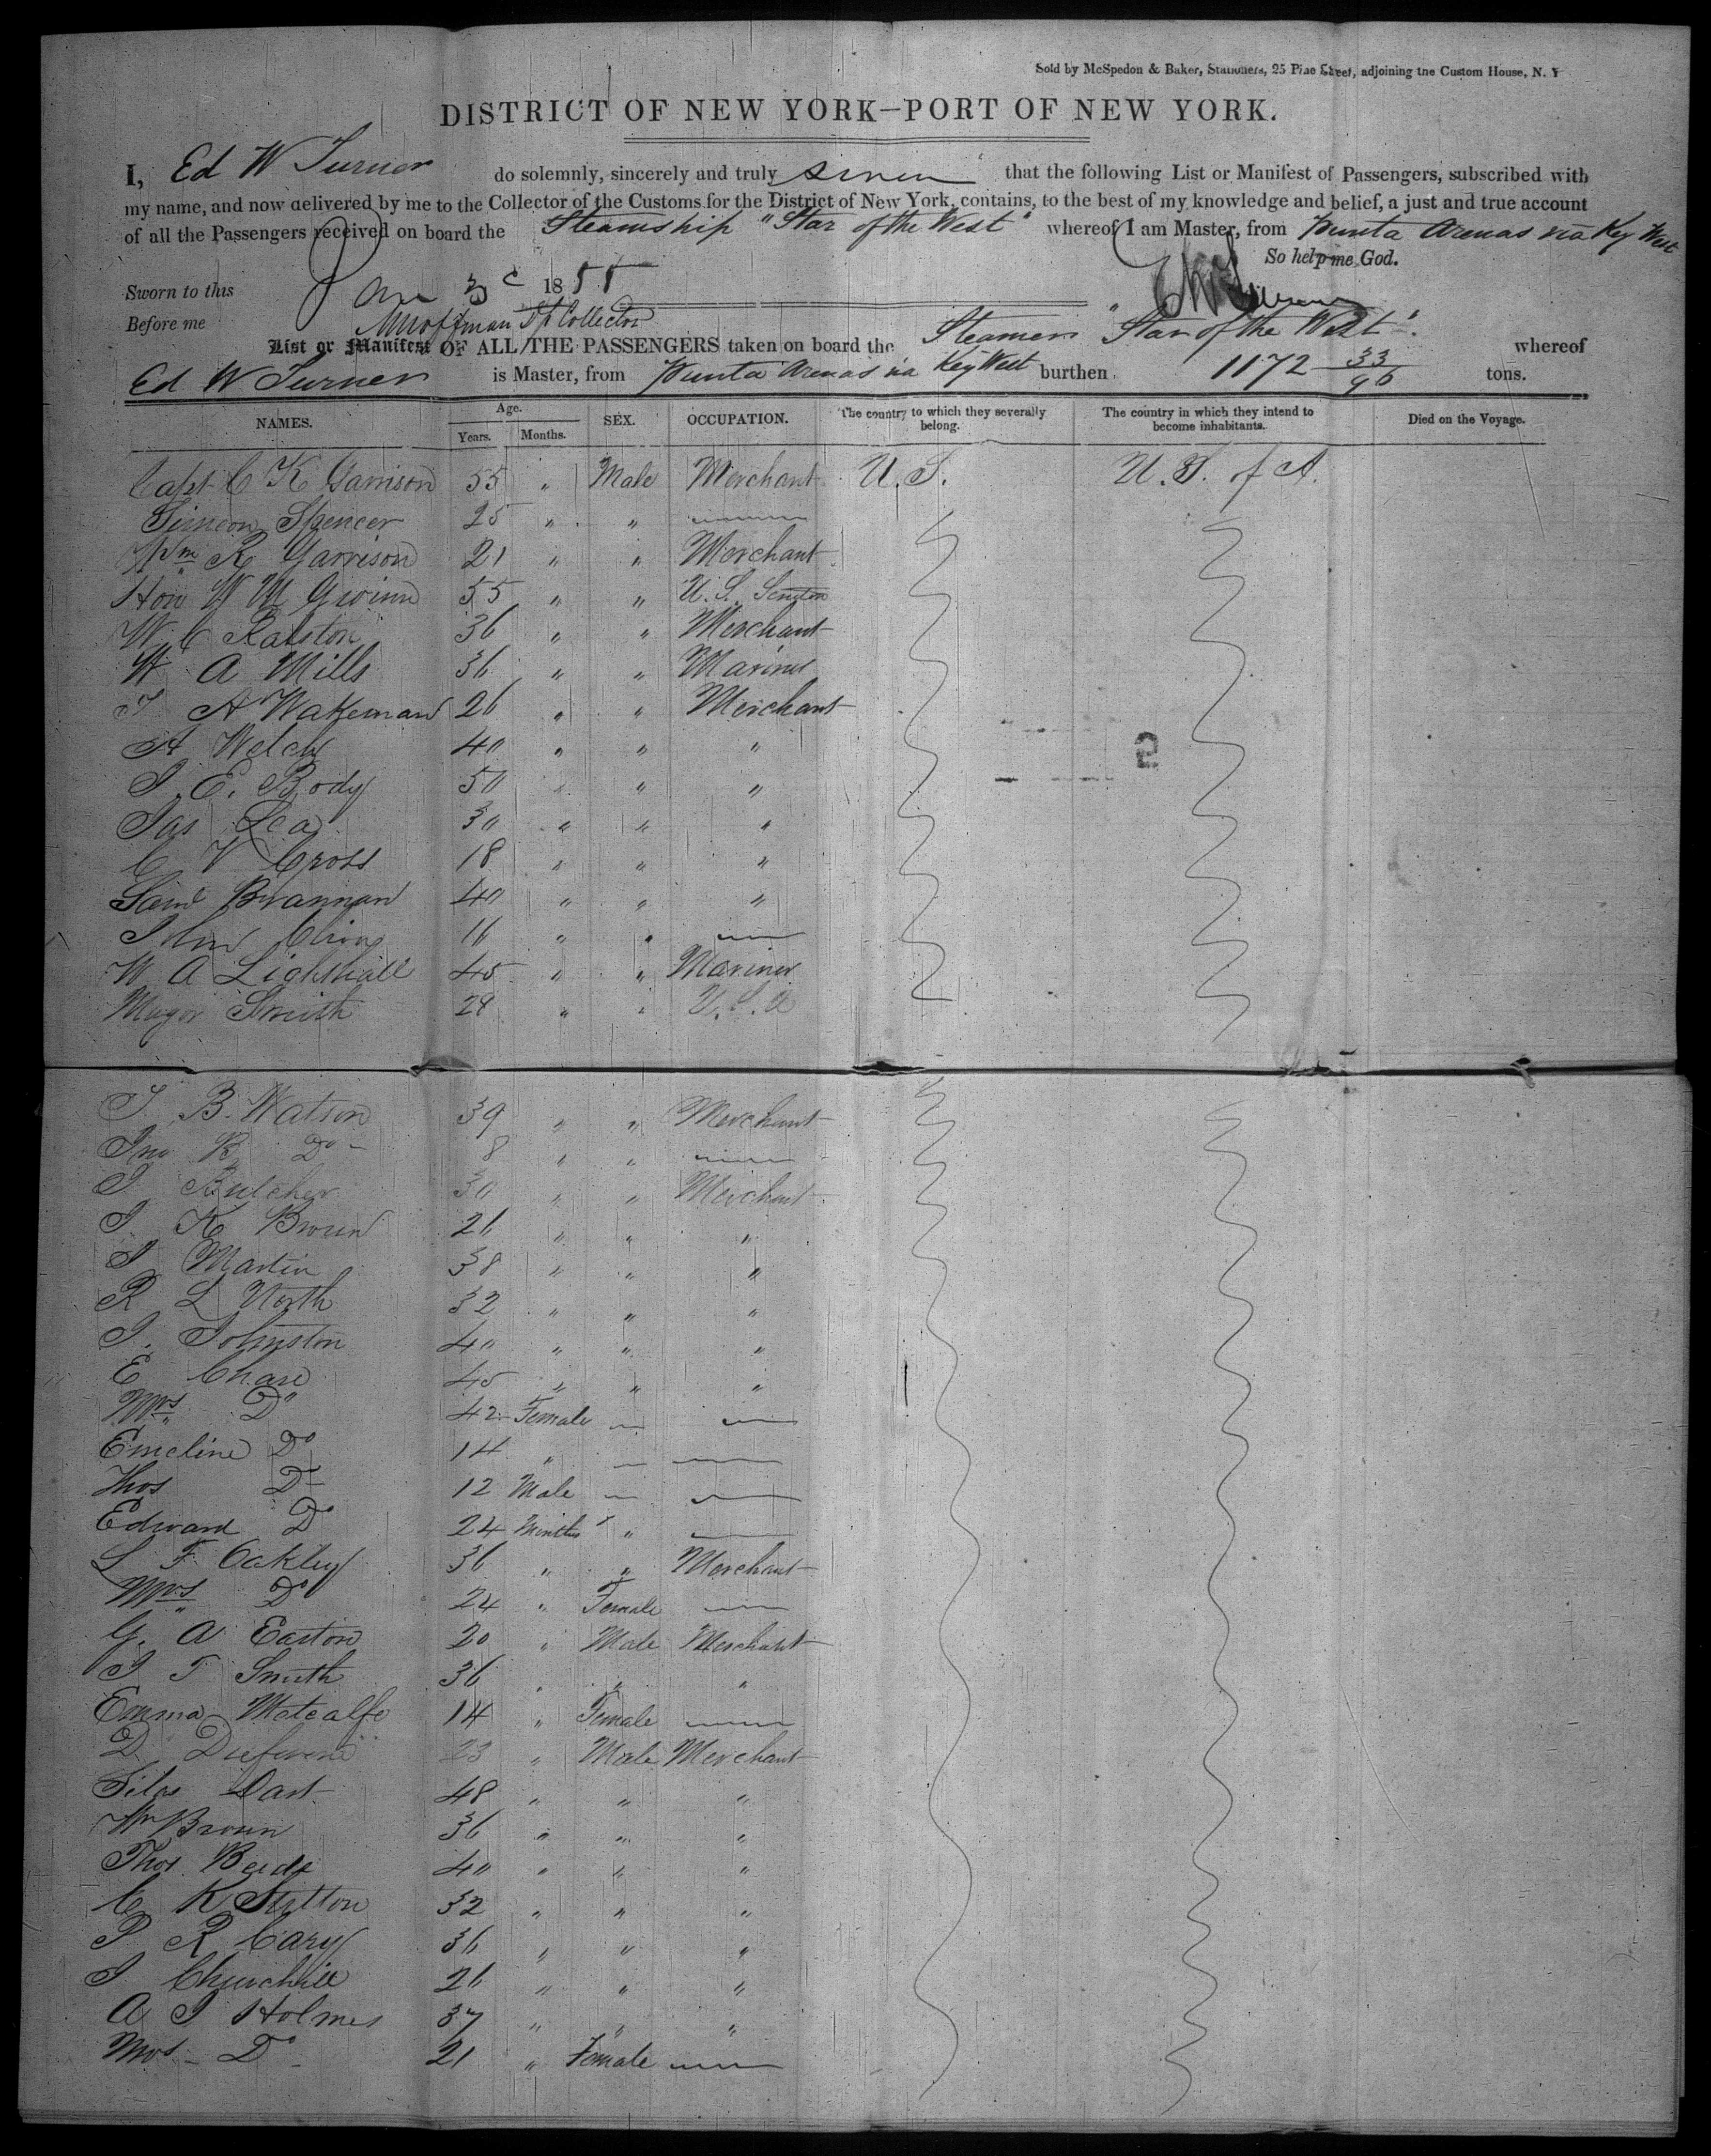 Sold by McSpedon & Baker, Stationers, 25 Pine Street, adjoining the Custom House, N. Y
DISTRICT OF NEW YORK—PORT OF NEW YORK.
I, Ed W Turner do solemnly, sincerely and truly swear that the following List or Manifest of Passengers, subscribed with
my name, and now delivered by me to the Collector of the Customs for the District of New York, contains, to the best of my knowledge and belief, a just and true account
of all the Passengers received on board the Steamship "Star of the West" whereof I am Master, from Punta Arenas via Key West
So help me God.
Sworn to this 1855
Before me Collector
List or Manifest OF ALL THE PASSENGERS taken on board the Steamer "Star of the West" whereof
Ed W Turner is Master, from Punta Arenas via Key West burthen 1172 33/95 tons.
NAMES. Age. Years. Months. SEX. OCCUPATION. The country to which they severally belong. The country in which they intend to become inhabitants. Died on the Voyage.
Capt C K Garrison 55 " Male Merchant U.S. U.S. of A.
Simeon Spencer 25 " "
Wm R Garrison 21 " " Merchant
Hon W M Gwinn 55 " " U.S. Senator
W C Ralston 36 " " Merchant
W A Mills 36 " " Mariner
T A Wakeman 26 " " Merchant
A Welch 40 " " "
J. E. Body 50 " " "
Jas Lea 30 " " "
C V Cross 18 " " "
Saml Brannan 40 " " "
John 16 " "
W A Lighthall 45 " " Mariner
Major Smith 28 " " U.S.A
T B. Watson 39 " " Merchant
Jno R Do 8 " "
J Butcher 30 " " Merchant
J K Brown 26 " " "
J Martin 38 " " "
R L North 32 " " "
J. Johnston 40 " " "
E Chase 45 " " "
Mrs Do 42 Female
Emeline Do 14 "
Thos Do 12 Male
Edward Do 24 Months " "
L F Oakley 36 " " Merchant
Mrs Do 24 " Female
G. A Easton 20 " Male Merchant
J T Smith 36 " " "
Emma Metcalfe 14 " Female
D 23 " Male Merchant
Silas Dart 48 " " "
Wm Brown 36 " " "
Thos 40 " " "
C K 32 " " "
P R Cary 36 " " "
J Churchill 26 " " "
A J Holmes 37 " " "
Mrs Do 21 " Female
2